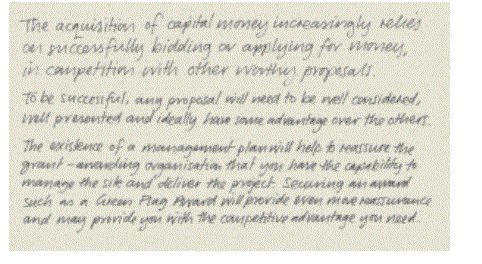 The acquisition of capital money increasingly relies
on successfully bidding or applying for money,
in competition with other worthy proposals.
To be successful, any proposal will need to be well considered,
well presented and ideally have some advantage over the others.
The existence of a management plan will help to reassure the
grant-awarding organisation that you have the capability to
manage the site and deliver the project. Securing an award
such as a Green Flag Award will provide even more reassurance
and may provide you with the competitive advantage you need.